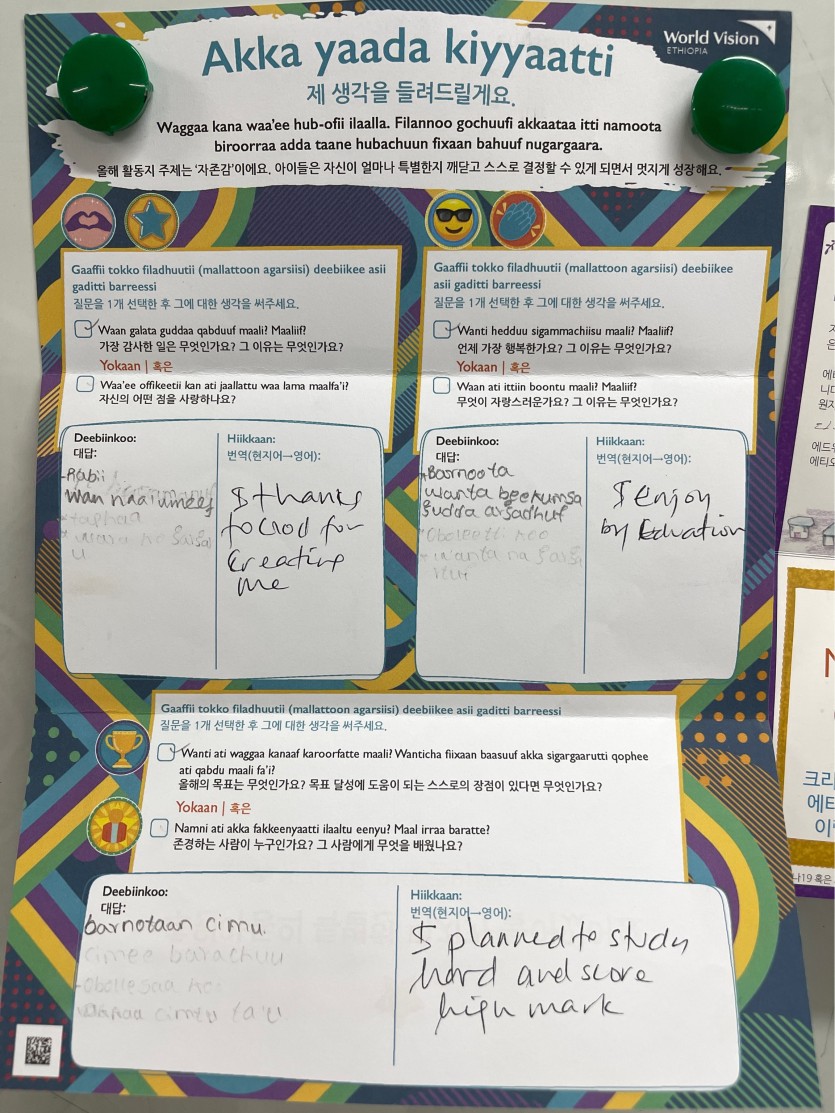 Akka yaada kiyyaatti
World Vision
ETHIOPIA
제 생각을 들려드릴게요.
Waggaa kana waa'ee hub-ofii ilaalla. Filannoo gochuufi akkaataa itti namoota
biroorraa adda taane hubachuun fixaan bahuuf nugargaara.
올해 활동지 주제는 '자존감'이에요. 아이들은 자신이 얼마나 특별한지 깨닫고 스스로 결정할 수 있게 되면서 멋지게 성장해요.
Gaaffii tokko filadhuutii (mallattoon agarsiisi) deebiikee asii
gaditti barreessi
질문을 1개 선택한 후 그에 대한 생각을 써주세요.
Waan galata guddaa qabduuf maali? Maaliif?
가장 감사한 일은 무엇인가요? 그 이유는 무엇인가요?
Yokaan | 혹은
Waa'ee offikeetii kan ati jaallattu waa lama maalfa'i?
자신의 어떤 점을 사랑하나요?
Deebiinkoo:
대답:
Rabii
Wan naaɪumeef
Hiikkaan:
번역(현지어→영어):
I thanks
to God for
Creating
me
Gaaffii tokko filadhuutii (mallattoon agarsiisi) deebiikee
asii gaditti barreessi
질문을 1개 선택한 후 그에 대한 생각을 써주세요.
Wanti hedduu sigammachiisu maali? Maaliif?
언제 가장 행복한가요? 그 이유는 무엇인가요?
Yokaan | 혹은
Waan ati ittiin boontu maali? Maaliif?
무엇이 자랑스러운가요? 그 이유는 무엇인가요?
Deebiinkoo:
대답:
Barnoota
wanta beekumsa
Hiikkaan:
번역(현지어→영어):
I enjoy
by Eduation
Gaaffii tokko filadhuutii (mallattoon agarsiisi) deebiikee asii gaditti barreessi
질문을 1개 선택한 후 그에 대한 생각을 써주세요.
Wanti ati waggaa kanaaf karoorfatte maali? Wanticha fiixaan baasuuf akka sigargaarutti qophee
ati qabdu maali fa'i?
올해의 목표는 무엇인가요? 목표 달성에 도움이 되는 스스로의 장점이 있다면 무엇인가요?
Yokaan | 혹은
Namni ati akka fakkeenyaatti ilaaltu eenyu? Maal irraa baratte?
존경하는 사람이 누구인가요? 그 사람에게 무엇을 배웠나요?
Deebiinkoo:
대답:
barnotaan cimu.
cimee barachuu
Hiikkaan:
번역(현지어→영어):
I planned to study
hard and score
high mark